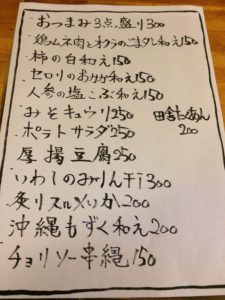 おつまみ3点盛り300
鶏ムネ肉とオクラのごまダレ和え150
柿の白和え150
セロリのおかか和え150
人参の塩こぶ和え150
みそキュウリ250
田舎たくあん
200
ポテトサラダ250
厚揚豆腐250
いわしのみりん干し300
炙りスルメいか200
沖縄もずく和え200
チョリソー串縄150